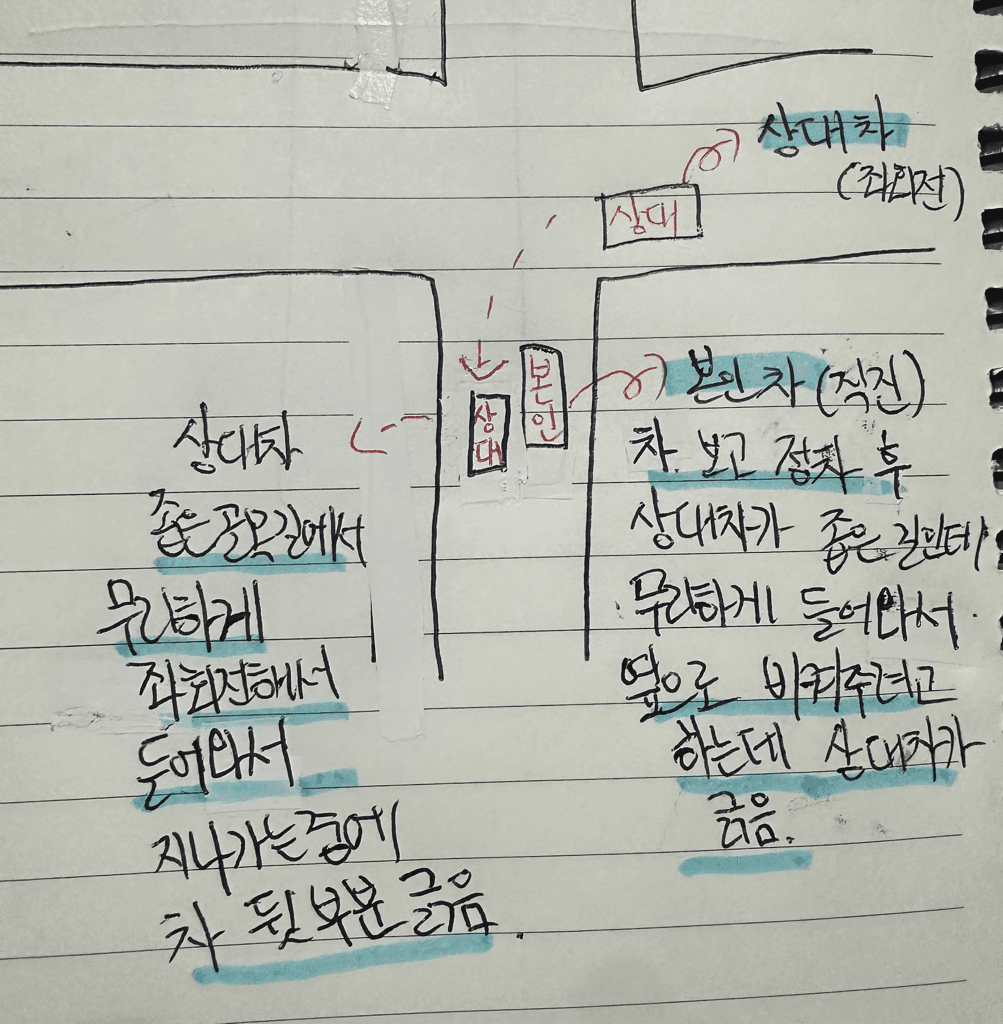 상대차
(좌회전)
상대
본인
상대
본인 차 (직진)
차. 보고 정차 후
상대차가 좁은 길인데
무리하게 들어와서
옆으로 비켜주려고
하는데 상대차가
긁음.
상대차
좁은 골목길에서
무리하게
좌회전해서
들어와서
지나가는 중에
차 뒷부분 긁음.